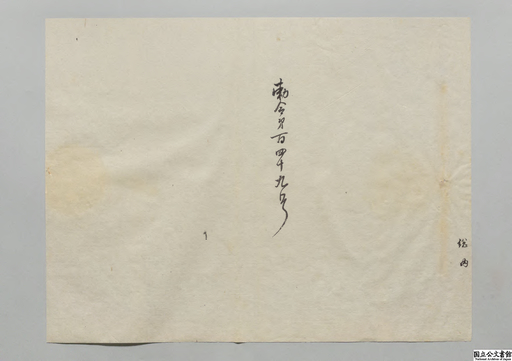 勅令第百四十九号
総内
国立公文書館
National Archives of Japan